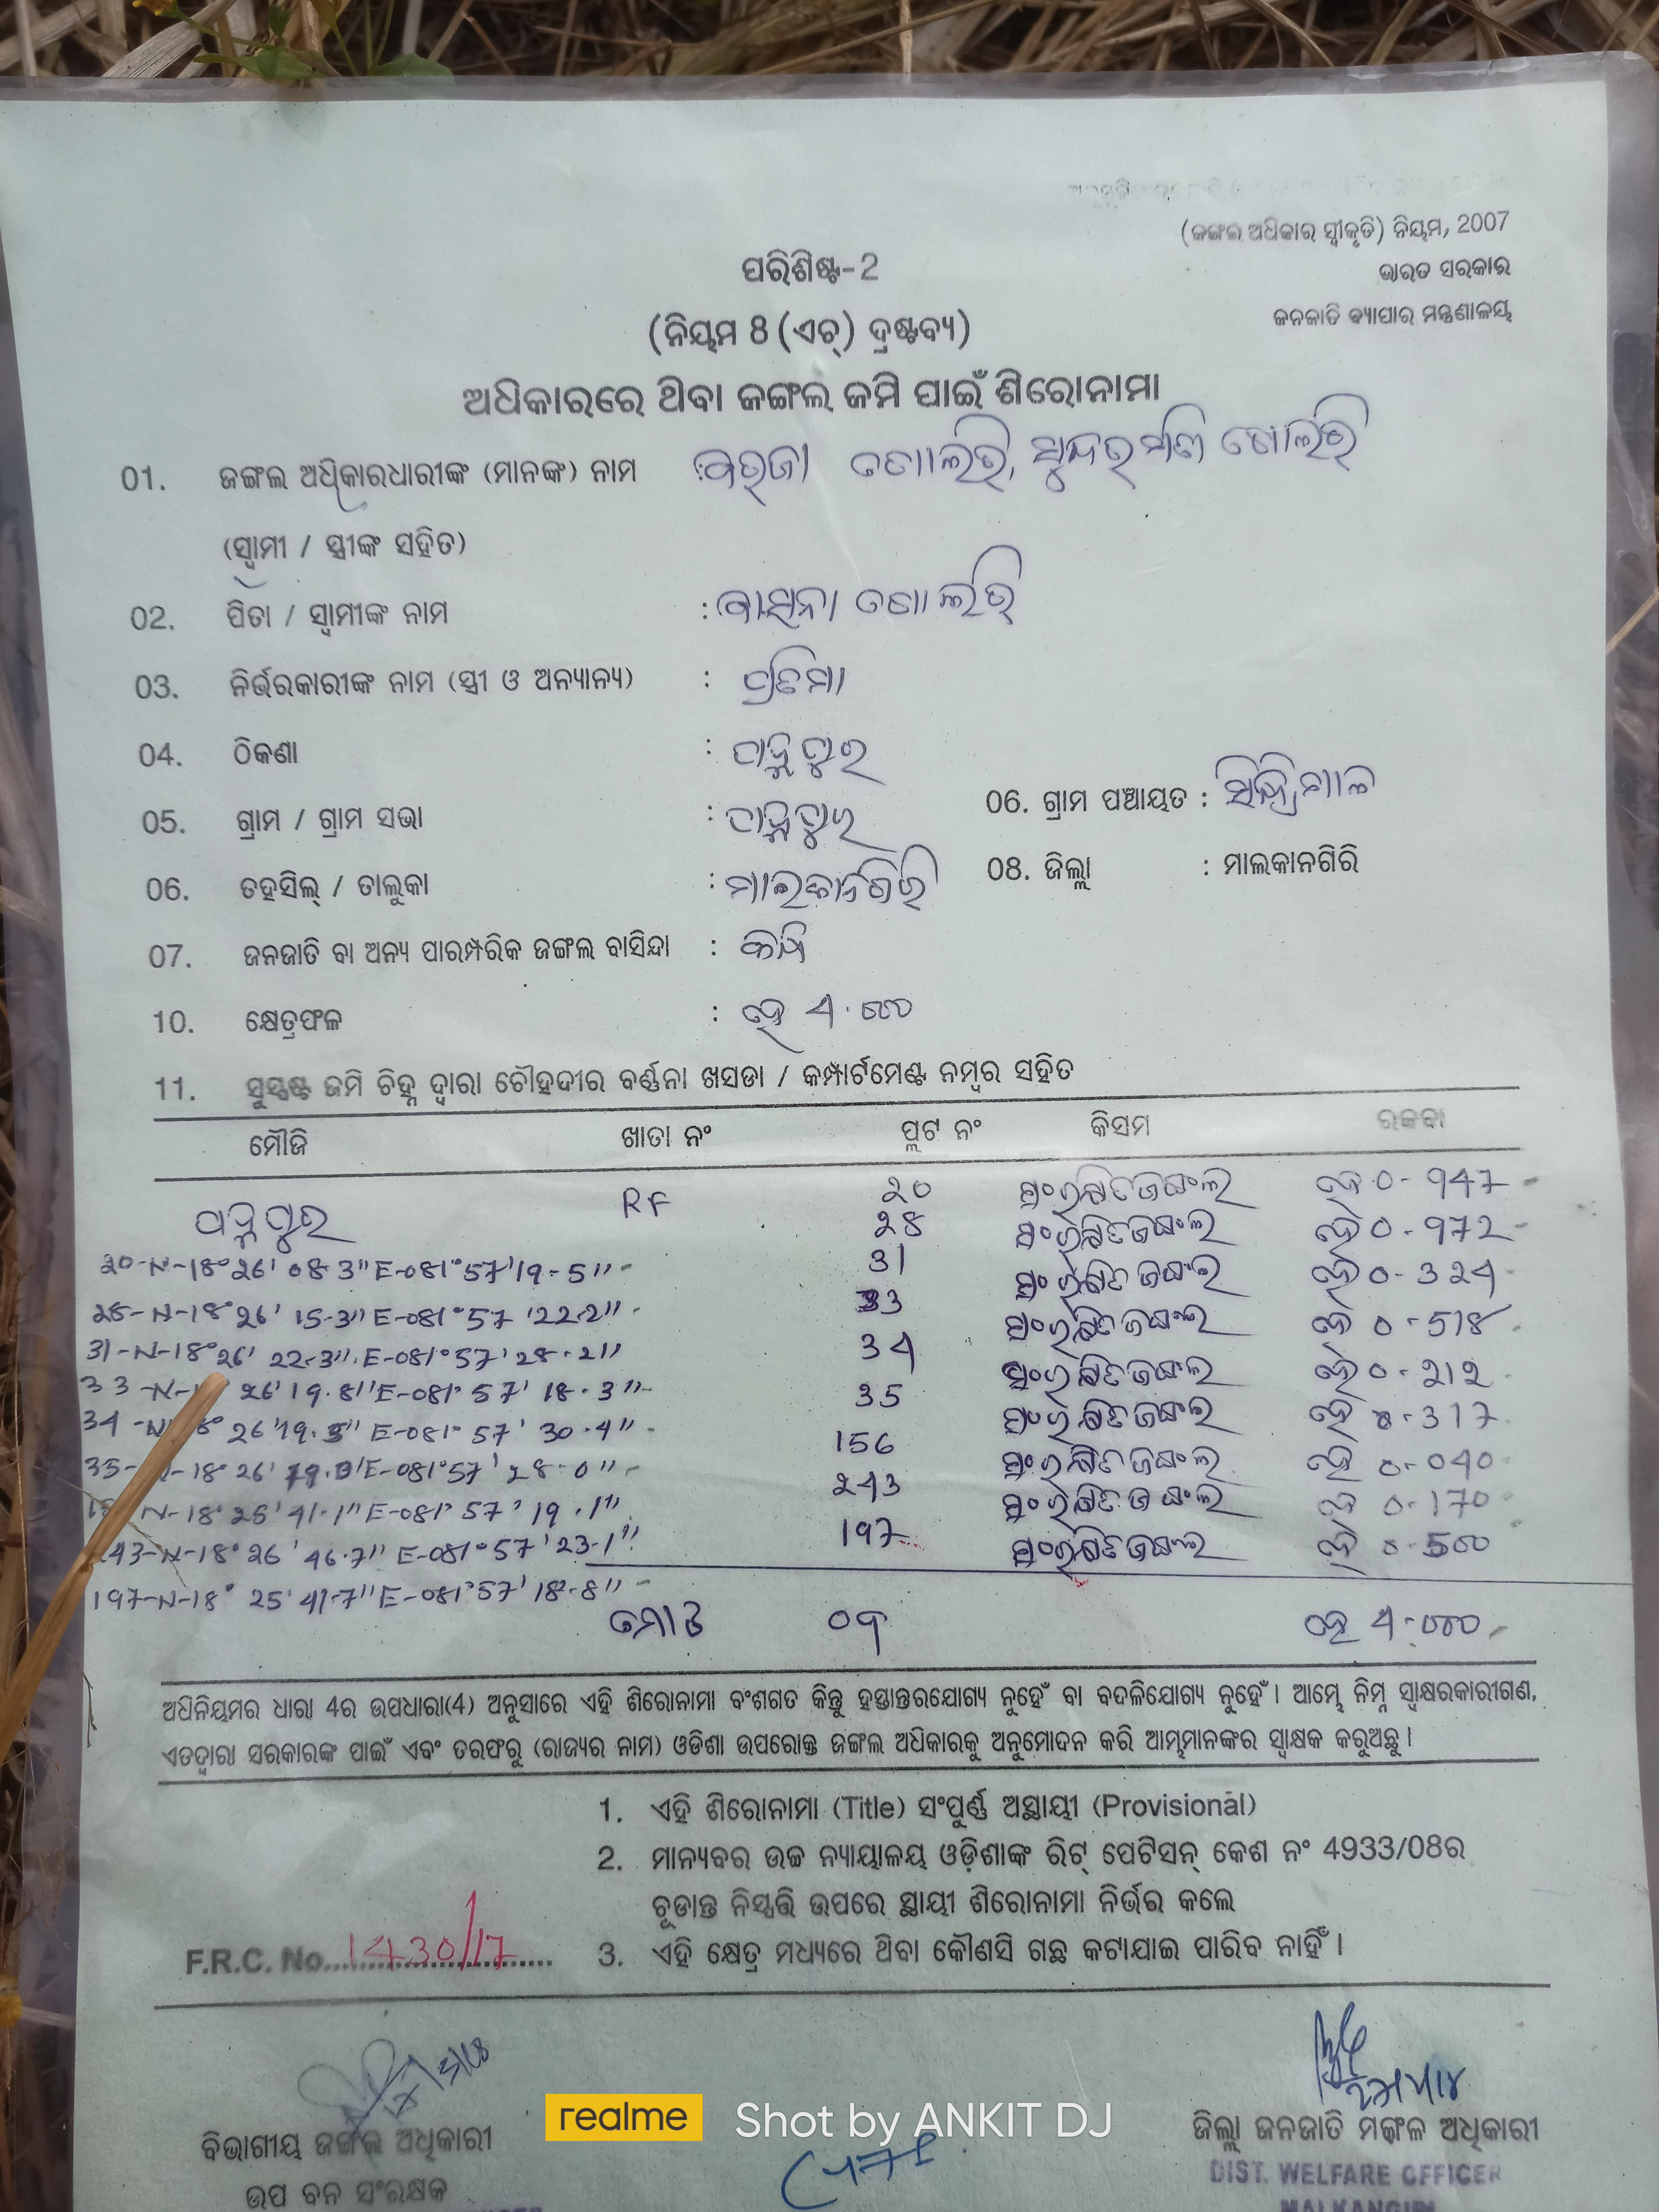 (ଜଙ୍ଗଲ ଅଧିକାର ସ୍ୱୀକୃତି) ନିୟମ, 2007
ଭାରତ ସରକାର
ଜନଜାତି ବ୍ୟାପାର ମନ୍ତ୍ରଣାଳୟ
ପରିଶିଷ୍ଟ-2
(ନିୟମ 8 (ଏଚ୍) ଦ୍ରଷ୍ଟବ୍ୟ)
ଅଧିକାରରେ ଥିବା ଜଙ୍ଗଲ ଜମି ପାଇଁ ଶିରୋନାମା
01. ଜଙ୍ଗଲ ଅଧିକାରଧାରୀଙ୍କ (ମାନଙ୍କ) ନାମ :
(ସ୍ୱାମୀ / ସ୍ତ୍ରୀଙ୍କ ସହିତ)
02. ପିତା / ସ୍ୱାମୀଙ୍କ ନାମ :
03. ନିର୍ଭରକାରୀଙ୍କ ନାମ (ସ୍ତ୍ରୀ ଓ ଅନ୍ୟାନ୍ୟ) : ପ୍ରତିମା
04. ଠିକଣା :
05. ଗ୍ରାମ / ଗ୍ରାମ ସଭା :
06. ଗ୍ରାମ ପଞ୍ଚାୟତ :
06. ତହସିଲ୍ / ତାଲୁକା : ମାଲକାନଗିରି
08. ଜିଲ୍ଲା : ମାଲକାନଗିରି
07. ଜନଜାତି ବା ଅନ୍ୟ ପାରମ୍ପରିକ ଜଙ୍ଗଲ ବାସିନ୍ଦା :
10. କ୍ଷେତ୍ରଫଳ : ହେ 4.000
11. ସୁସ୍ପଷ୍ଟ ଜମି ଚିହ୍ନ ଦ୍ୱାରା ଚୌହଦ୍ଦୀର ବର୍ଣ୍ଣନା ଖସଡା / କମ୍ପାର୍ଟମେଣ୍ଟ ନମ୍ବର ସହିତ
ମୌଜି ଖାତା ନଂ ପ୍ଲଟ ନଂ କିସମ ରକବା
RF 20 ସଂରକ୍ଷିତ ଜଙ୍ଗଲ ହେ 0-947
28 ସଂରକ୍ଷିତ ଜଙ୍ଗଲ ହେ 0-972
20-N-18°26' 08.3" E-081°57'19.5" 31 ସଂରକ୍ଷିତ ଜଙ୍ଗଲ ହେ 0-324
28-N-18°26' 15.3" E-081°57'22.2" 33 ସଂରକ୍ଷିତ ଜଙ୍ଗଲ ହେ 0-518
31-N-18°26' 22.3" E-081°57'28.2" 34 ସଂରକ୍ଷିତ ଜଙ୍ଗଲ ହେ 0-212
33-N- 26'19.8" E-081°57' 18.3" 35 ସଂରକ୍ଷିତ ଜଙ୍ଗଲ ହେ 0-317
34-N 8° 26'19.5" E-081°57' 30.4" 156 ସଂରକ୍ଷିତ ଜଙ୍ଗଲ ହେ 0-040
35-N-18°26' E-081°57' 28.0" 243 ସଂରକ୍ଷିତ ଜଙ୍ଗଲ ହେ 0-170
N-18°25'41.1" E-081°57'19.1" 197 ସଂରକ୍ଷିତ ଜଙ୍ଗଲ ହେ 0-500
243-N-18°26'46.7" E-081°57'23.1"
197-N-18°25'41.7" E-081°57'18.8"
ମୋଟ ୦୯ ହେ 4.000
ଅଧିନିୟମର ଧାରା 4ର ଉପଧାରା(4) ଅନୁସାରେ ଏହି ଶିରୋନାମା ବଂଶଗତ କିନ୍ତୁ ହସ୍ତାନ୍ତରଯୋଗ୍ୟ ନୁହେଁ ବା ବଦଳିଯୋଗ୍ୟ ନୁହେଁ। ଆମ୍ଭେ ନିମ୍ନ ସ୍ୱାକ୍ଷରକାରୀଗଣ,
ଏତଦ୍ଦ୍ୱାରା ସରକାରଙ୍କ ପାଇଁ ଏବଂ ତରଫରୁ (ରାଜ୍ୟର ନାମ) ଓଡିଶା ଉପରୋକ୍ତ ଜଙ୍ଗଲ ଅଧିକାରକୁ ଅନୁମୋଦନ କରି ଆମ୍ଭମାନଙ୍କର ସ୍ୱାକ୍ଷକ କରୁଅଛୁ।
1. ଏହି ଶିରୋନାମା (Title) ସଂପୁର୍ଣ୍ଣ ଅସ୍ଥାୟୀ (Provisional)
2. ମାନ୍ୟବର ଉଚ୍ଚ ନ୍ୟାୟାଳୟ ଓଡ଼ିଶାଙ୍କ ରିଟ୍ ପେଟିସନ୍ କେଶ ନଂ 4933/08ର
ଚୂଡାନ୍ତ ନିସ୍ପତ୍ତି ଉପରେ ସ୍ଥାୟୀ ଶିରୋନାମା ନିର୍ଭର କଲେ
3. ଏହି କ୍ଷେତ୍ର ମଧ୍ୟରେ ଥିବା କୌଣସି ଗଛ କଟାଯାଇ ପାରିବ ନାହିଁ।
F.R.C. No. 1430/17
ବିଭାଗୀୟ ଜଙ୍ଗଲ ଅଧିକାରୀ
ଉପ ବନ ସଂରକ୍ଷକ
ଜିଲ୍ଲା ଜନଜାତି ମଙ୍ଗଳ ଅଧିକାରୀ
DIST. WELFARE OFFICER
MALKANGIRI
realme Shot by ANKIT DJ